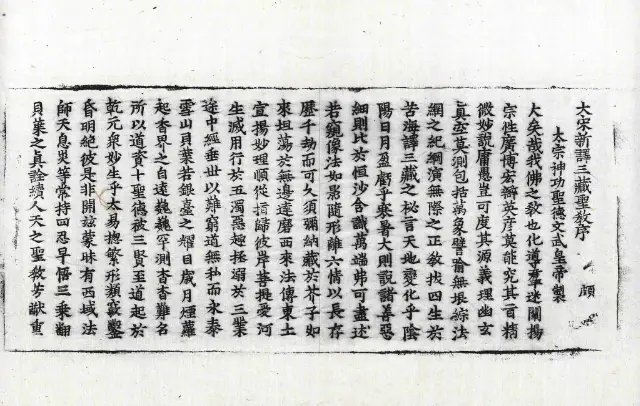 大宋新譯三藏聖教序
太宗神功聖德文武皇帝製
大矣哉我佛之教也化導羣迷闡揚
宗性廣博宏辯英彥莫能究其旨精
微妙說庸愚豈可度其源義理幽玄
真空莫測包括萬象譬喻無垠綜法
網之紀綱演無際之正教拔四生於
苦海譯三藏之秘言天地變化乎陰
陽日月盈虧乎寒暑大則說諸善惡
細則比於恒沙含識萬端弗可盡述
若窺像法如影隨形離六情以長存
歷千劫而可久須彌納藏於芥子如
來坦蕩於無邊達磨西來法傳東土
宣揚妙理順從指歸彼岸菩提愛河
生滅用行於五濁惡趣拯溺於三業
途中經垂世以難窮道無私而永泰
雪山貝葉若銀臺之耀目歲月煙蘿
起香界之自遠巍巍罕測杳杳難名
所以道資十聖德被三賢至道起於
乾元衆妙生乎太易摠繁形類竅鑿
昏明絕彼是非開茲蒙昧有西域法
師天息災等常持四忍早悟三乘翻
貝葉之真詮續人天之聖教芳猷重